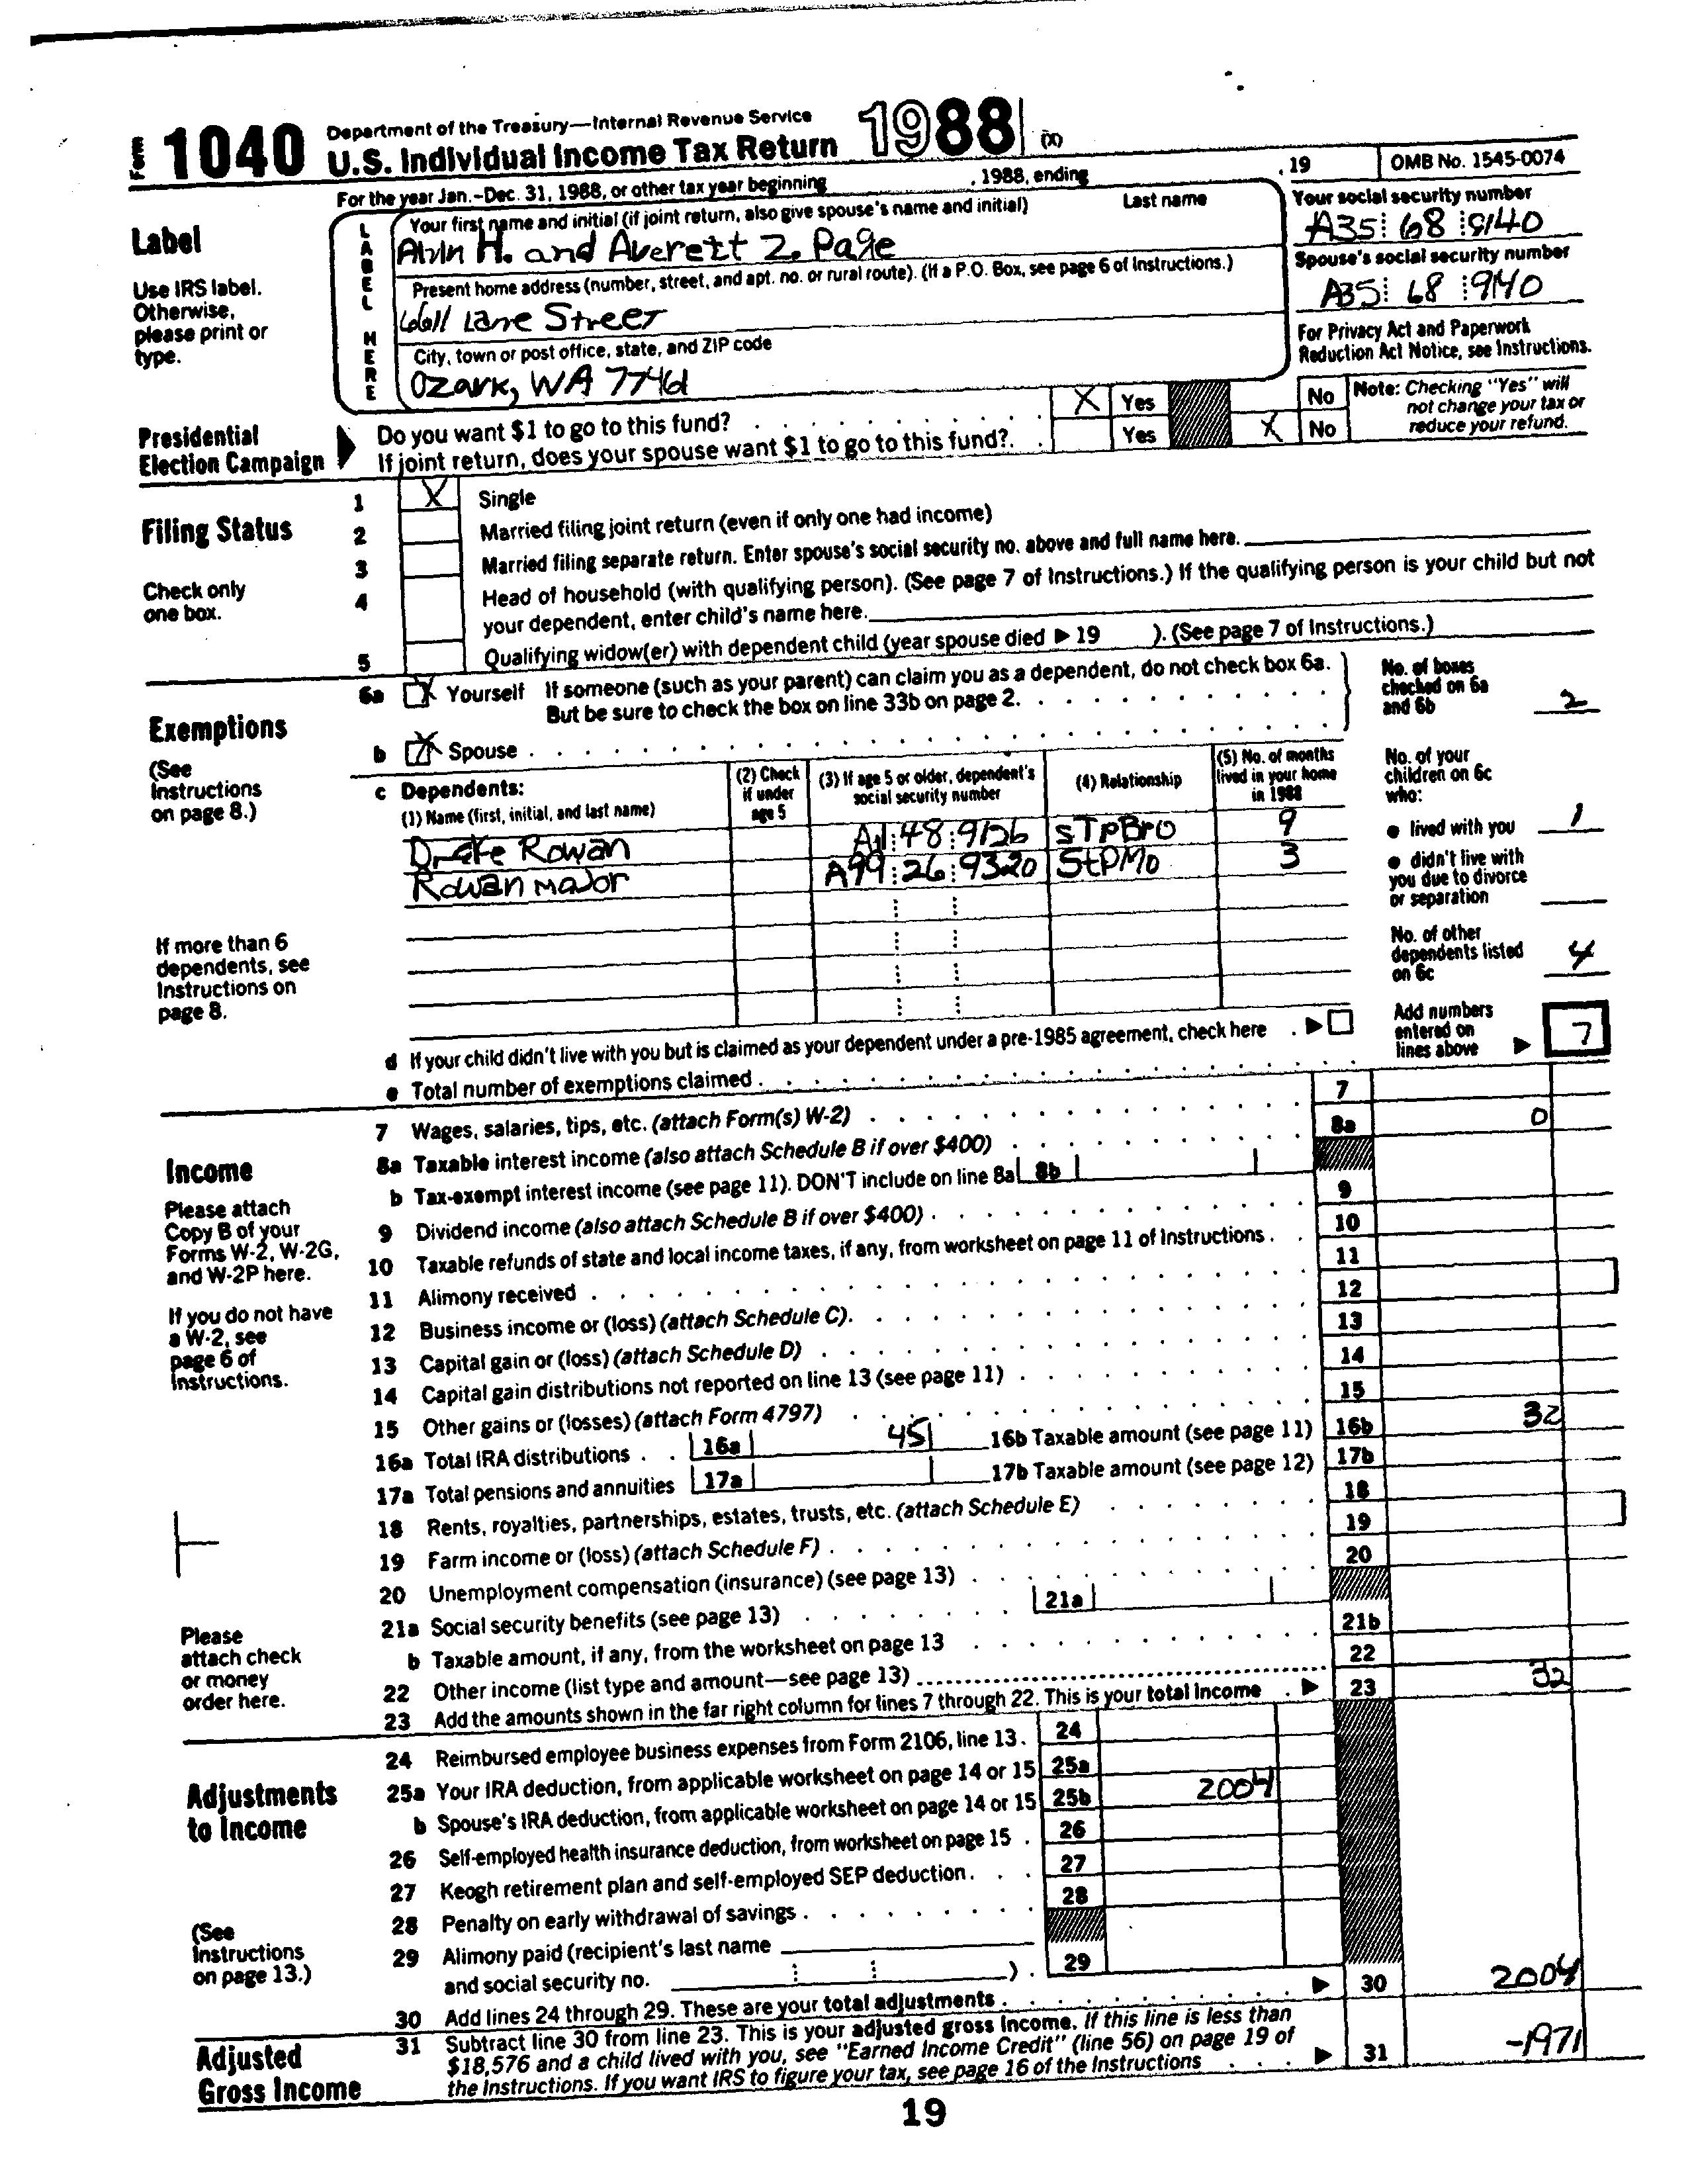 Form 1040 Department of the Treasury—Internal Revenue Service
U.S. Individual Income Tax Return 1988 (X)
For the year Jan.-Dec. 31, 1988, or other tax year beginning , 1988, ending , 19 OMB No. 1545-0074
Label
Use IRS label.
Otherwise,
please print or
type.
LABEL HERE
Your first name and initial (if joint return, also give spouse's name and initial) Last name
Alvin H. and Averett Z. Page
Your social security number
A35 68 9140
Present home address (number, street, and apt. no. or rural route). (If a P.O. Box, see page 6 of Instructions.)
6611 Lane Street
Spouse's social security number
A35 68 9140
City, town or post office, state, and ZIP code
Ozark, WA 77461
For Privacy Act and Paperwork
Reduction Act Notice, see Instructions.
Presidential
Election Campaign
Do you want $1 to go to this fund? X Yes No
If joint return, does your spouse want $1 to go to this fund? Yes X No
Note: Checking "Yes" will
not change your tax or
reduce your refund.
Filing Status
Check only
one box.
1 X Single
2 Married filing joint return (even if only one had income)
3 Married filing separate return. Enter spouse's social security no. above and full name here.
4 Head of household (with qualifying person). (See page 7 of Instructions.) If the qualifying person is your child but not
your dependent, enter child's name here.
5 Qualifying widow(er) with dependent child (year spouse died ▶ 19 ). (See page 7 of Instructions.)
Exemptions
(See
Instructions
on page 8.)
6a X Yourself If someone (such as your parent) can claim you as a dependent, do not check box 6a.
But be sure to check the box on line 33b on page 2.
b X Spouse
No. of boxes
checked on 6a
and 6b 2
c Dependents:
(1) Name (first, initial, and last name)
(2) Check
if under
age 5
(3) If age 5 or older, dependent's
social security number
(4) Relationship
(5) No. of months
lived in your home
in 1988
Rowan A11 48 9126 STPBro 9
Rowan Major A99 26 9320 StPMo 3
No. of your
children on 6c
who:
● lived with you 1
● didn't live with
you due to divorce
or separation
No. of other
dependents listed
on 6c 4
If more than 6
dependents, see
Instructions on
page 8.
d If your child didn't live with you but is claimed as your dependent under a pre-1985 agreement, check here ▶
e Total number of exemptions claimed
Add numbers
entered on
lines above ▶ 7
Income
Please attach
Copy B of your
Forms W-2, W-2G,
and W-2P here.
If you do not have
a W-2, see
page 6 of
Instructions.
Please
attach check
or money
order here.
7 Wages, salaries, tips, etc. (attach Form(s) W-2) 7
8a Taxable interest income (also attach Schedule B if over $400) 8a 0
b Tax-exempt interest income (see page 11). DON'T include on line 8a 8b
9 Dividend income (also attach Schedule B if over $400) 9
10 Taxable refunds of state and local income taxes, if any, from worksheet on page 11 of Instructions 10
11 Alimony received 11
12 Business income or (loss) (attach Schedule C) 12
13 Capital gain or (loss) (attach Schedule D) 13
14 Capital gain distributions not reported on line 13 (see page 11) 14
15 Other gains or (losses) (attach Form 4797) 15
16a Total IRA distributions 16a 45 16b Taxable amount (see page 11) 16b 32
17a Total pensions and annuities 17a 17b Taxable amount (see page 12) 17b
18 Rents, royalties, partnerships, estates, trusts, etc. (attach Schedule E) 18
19 Farm income or (loss) (attach Schedule F) 19
20 Unemployment compensation (insurance) (see page 13) 20
21a Social security benefits (see page 13) 21a
b Taxable amount, if any, from the worksheet on page 13 21b
22 Other income (list type and amount—see page 13) 22
23 Add the amounts shown in the far right column for lines 7 through 22. This is your total income ▶ 23 32
Adjustments
to Income
(See
Instructions
on page 13.)
24 Reimbursed employee business expenses from Form 2106, line 13. 24
25a Your IRA deduction, from applicable worksheet on page 14 or 15 25a
b Spouse's IRA deduction, from applicable worksheet on page 14 or 15 25b 2004
26 Self-employed health insurance deduction, from worksheet on page 15 26
27 Keogh retirement plan and self-employed SEP deduction 27
28 Penalty on early withdrawal of savings 28
29 Alimony paid (recipient's last name
and social security no. ) 29
30 Add lines 24 through 29. These are your total adjustments ▶ 30 2004
Adjusted
Gross Income
31 Subtract line 30 from line 23. This is your adjusted gross income. If this line is less than
$18,576 and a child lived with you, see "Earned Income Credit" (line 56) on page 19 of
the Instructions. If you want IRS to figure your tax, see page 16 of the Instructions ▶ 31 -1971
19